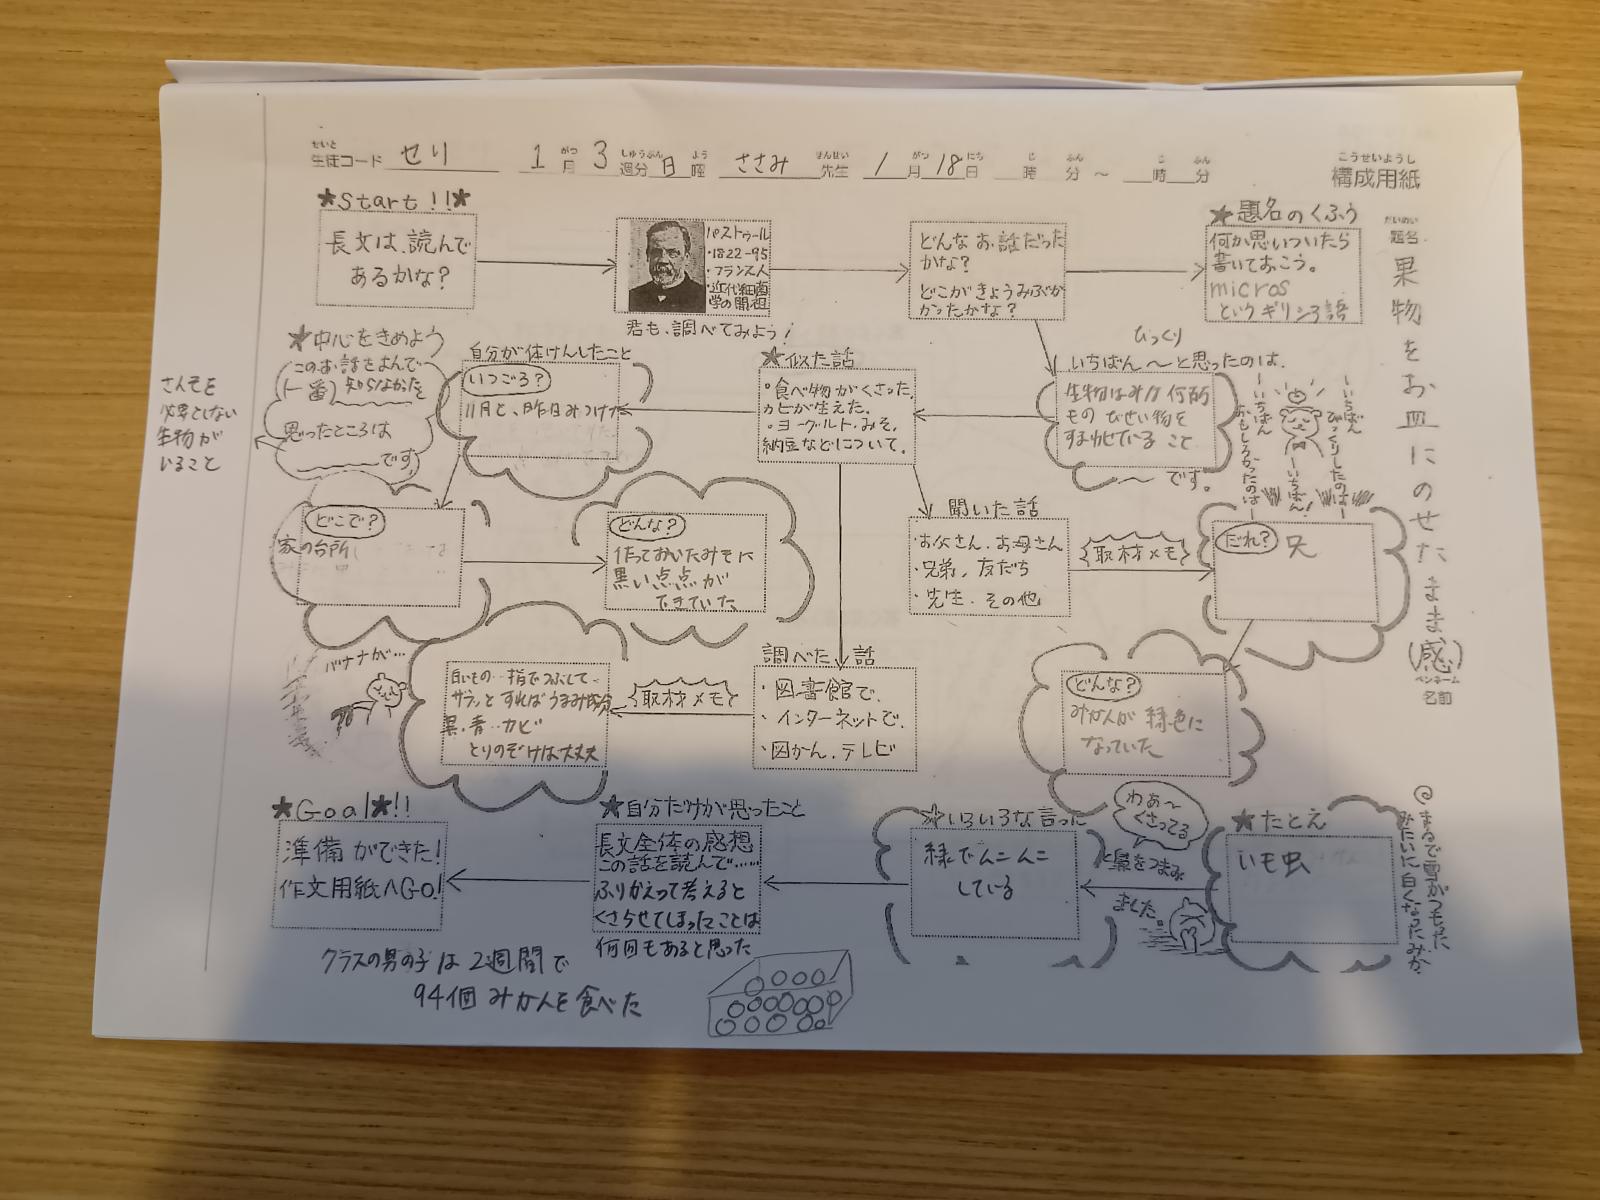 せいと
生徒コード せり 1月 3週分 日曜 ささみ 先生 1月18日 時 分 ～ 時 分
こうせいようし
構成用紙
だいめい
題名
果物をお皿にのせたまま(感)
ペンネーム
名前
★Start!!★
長文は、読んで
あるかな？
パストゥール
・1822-95
・フランス人
・近代細菌
学の開祖
君も、調べてみよう！
どんなお話だった
かな？
どこがきょうみぶか
かったかな？
★題名のくふう
何か思いついたら
書いておこう。
micros
というギリシろ語
びっくり
いちばん～と思ったのは、
生物はみな何所
～です。
ーいちばん
びっくりしたのはー
ーいちばん！
ーいちばん
おもしろかったのはー
★似た話
・食べ物がくさった、
カビが生えた。
・ヨーグルト、みそ、
納豆などについて。
自分が体けんしたこと
いつごろ？
11月と、昨日みつけた
★中心をきめよう
このお話をよんで
(一番)知らなかったを
思ったところは
です。
さんそを
必要としない
生物が
いること
どこで？
家の台所
どんな？
作っておいたみそに
黒い点点が
できていた
聞いた話
・お父さん、お母さん
・兄弟、友だち
・先生、その他
取材メモ
だれ？
兄
どんな？
みかんが緑色に
なっていた
調べた話
・図書館で、
・インターネットで、
・図かん、テレビ
取材メモ
白いもの…指でつぶして
サラッとすればうまみ成分
黒、青…カビ
とりのぞけば大丈夫
バナナが…
★たとえ
いも虫
◎まるで雪がつもった
みたいに白くなったみか
わあ～
くさってる
と鼻をつまみ
ました。
★いろいろな言った
緑でんこんこ
している
★自分だけが思ったこと
長文全体の感想
この話を読んで……
ふりかえって考えると
くさらせてしまったことは
何回もあると思った
★Goal★!!
準備ができた！
作文用紙へGo!
クラスの男の子は2週間で
94個みかんを食べた